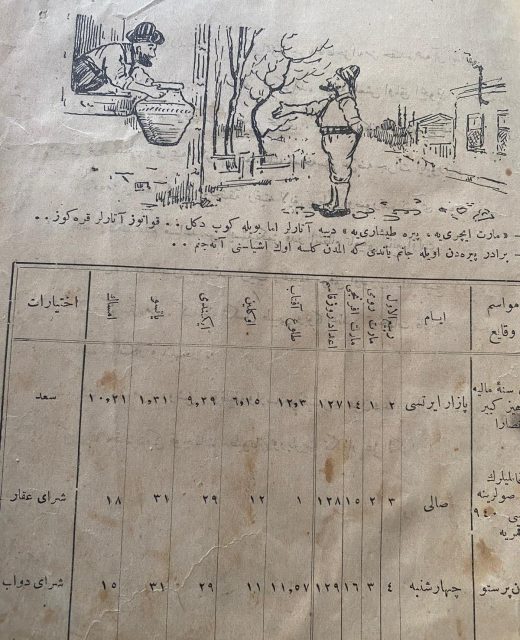 – «مارت ایچری‌یه ، پیره طیشاری‌یه» دییه آتارلر اما بویله کوپ دکل . . قوانوز آتارلر قره کوز . .
– برادر پیره‌دن اویله جانم یاندی که المدن کلسه اوك اشیاسنی آته‌جغم . .
مواسم وقایع ایام ربیع‌الاول مارت رومی مارت افرنجی اعداد روز قاسم طلوع آفتاب اوکلین ایکندی یاتسو امساك اختیارات
سنهٔ مالیه
کبیر
بازار ایرتسی ٢ ١ ١٤ ١٢٧ ١٢,٣ ٦,١٥ ٩,٢٩ ١,٣١ ١٠,٢١ سعد
صالی ٣ ٢ ١٥ ١٢٨ ١ ١٢ ٢٩ ٣١ ١٨ شرای عقار
٩٤٠
چهارشنبه ٤ ٣ ١٦ ١٢٩ ١١,٥٧ ١١ ٢٩ ٣١ ١٥ شرای دواب